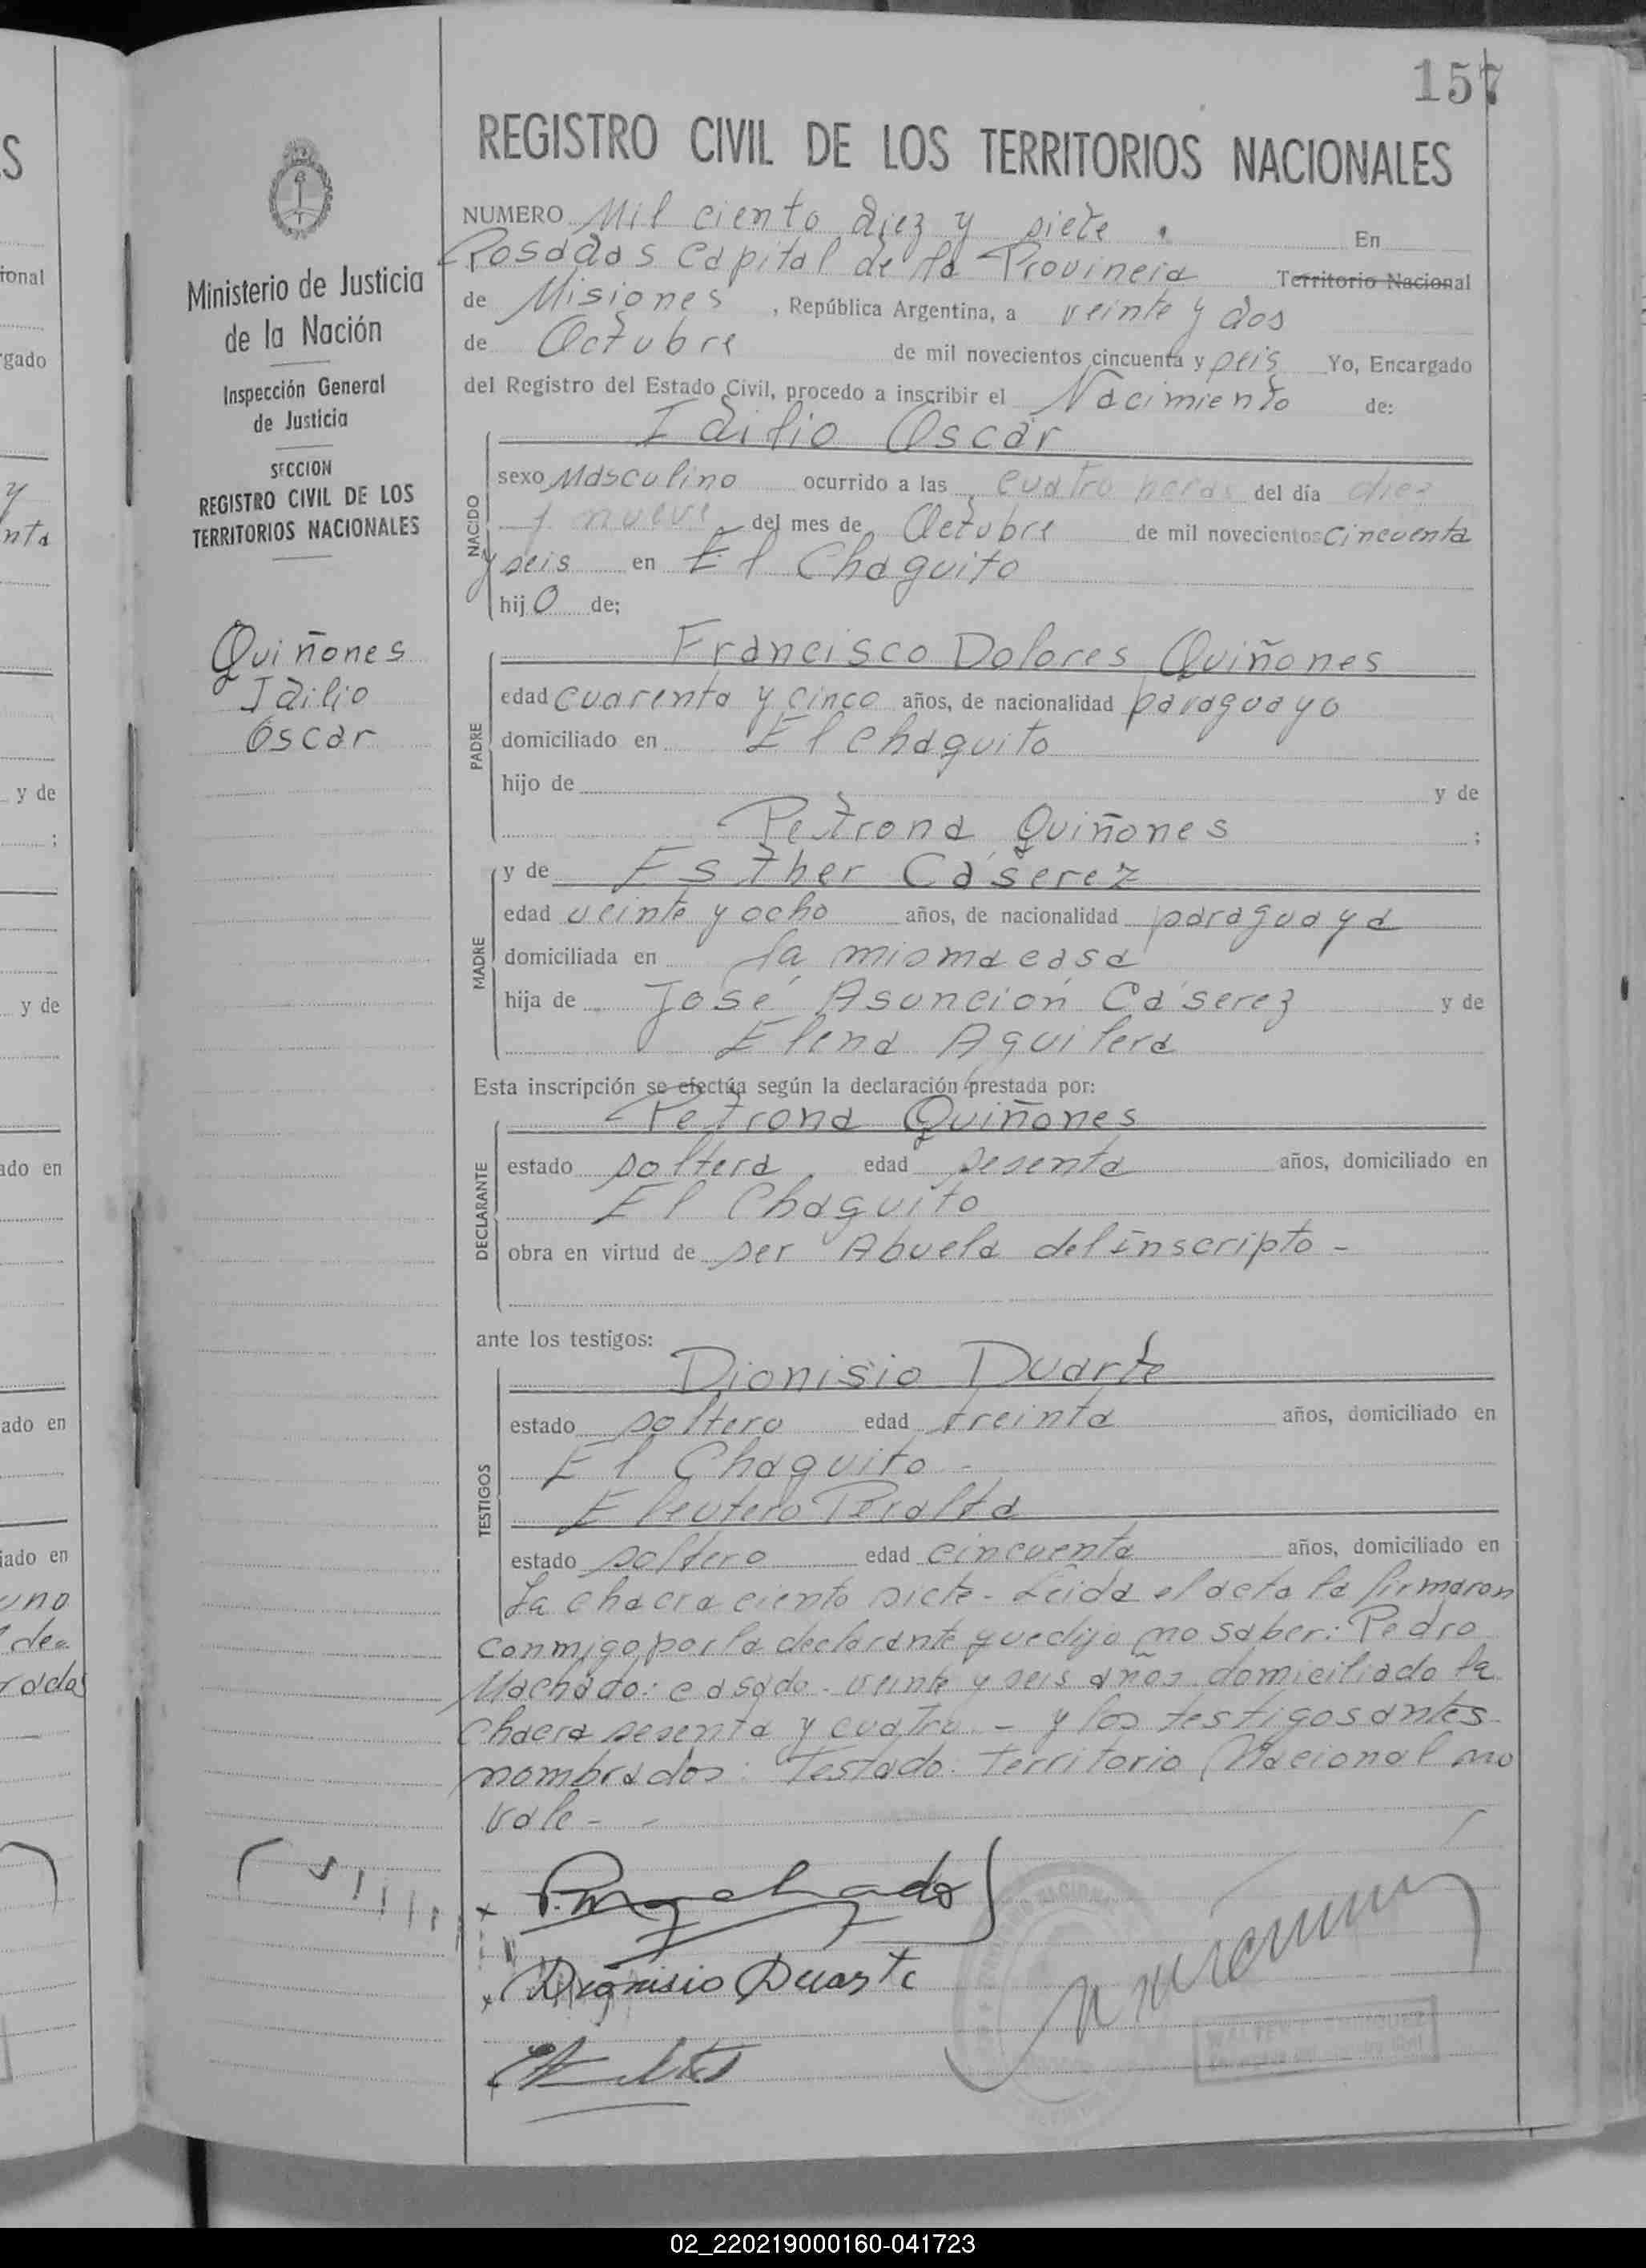 157
REGISTRO CIVIL DE LOS TERRITORIOS NACIONALES
Ministerio de Justicia
de la Nación
Inspección General
de Justicia
SECCION
REGISTRO CIVIL DE LOS
TERRITORIOS NACIONALES
Quiñones
Idilio
Oscar
NUMERO Mil ciento diez y siete. En
Posadas Capital de la Provincia Territorio Nacional
de Misiones, República Argentina, a veinte y dos
de Octubre de mil novecientos cincuenta y seis Yo, Encargado
del Registro del Estado Civil, procedo a inscribir el Nacimiento de:
Idilio Oscar
NACIDO
sexo Masculino ocurrido a las cuatro horas del día diez
y nueve del mes de Octubre de mil novecientos cincuenta
y seis en El Chaquito
hijo de;
Francisco Dolores Quiñones
PADRE
edad cuarenta y cinco años, de nacionalidad paraguayo
domiciliado en El Chaquito
hijo de y de
Petrona Quiñones ;
y de Esther Cáserez
MADRE
edad veinte y ocho años, de nacionalidad paraguaya
domiciliada en la misma casa
hija de José Asunción Cáserez y de
Elena Aguilera
Esta inscripción se efectúa según la declaración prestada por:
Petrona Quiñones
DECLARANTE
estado soltera edad sesenta años, domiciliado en
El Chaquito
obra en virtud de ser Abuela del inscripto -
ante los testigos:
Dionisio Duarte
TESTIGOS
estado soltero edad treinta años, domiciliado en
El Chaquito -
Eleutero Peralta
estado soltero edad cincuenta años, domiciliado en
La chacra ciento siete - Leida el acta la firmaron
conmigo por la declarante que dijo no saber: Pedro
Machado: casado - veinte y seis años domiciliado la
chacra sesenta y cuatro - y los testigos antes
nombrados: Testado: Territorio Nacional no
vale - -
P. Machado
Dionisio Duarte
02_220219000160-041723